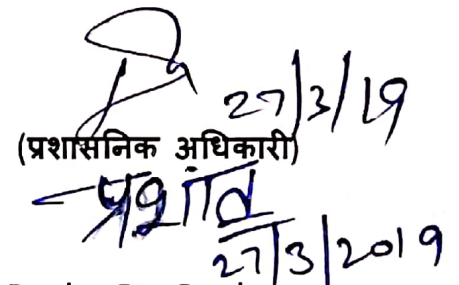 27/3/19
(प्रशासनिक अधिकारी)
प्रशांत
27/3/2019